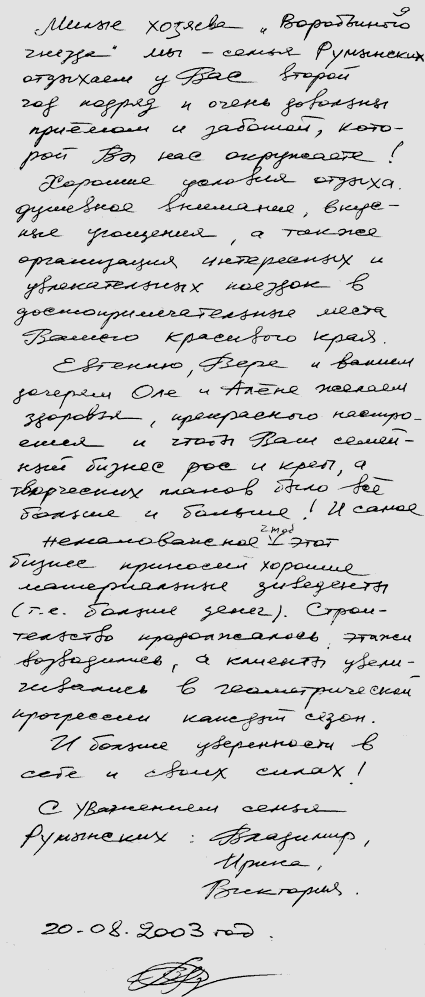 Милые хозяева „Воробьиного
гнезда" мы – семья Румынских
отдыхаем у Вас второй
год подряд и очень довольны
приёмом и заботой, кото-
рой Вы нас окружаете!
Хорошие условия отдыха.
душевное внимание, вкус-
ные угощения, а также
организация интересных и
увлекательных поездок в
достопримечательные места
Вашего красивого края.
Евгению, Вере и вашим
дочерям Оле и Алёне желаем
здоровья, прекрасного настро-
ения и чтобы Ваш семей-
ный бизнес рос и креп, а
творческих планов было всё
больше и больше! И самое
немаловажное чтоб этот
бизнес приносил хорошие
материальные дивиденты
(т.е. больше денег). Строи-
тельство продолжалось, этажи
возводились, а клиенты увели-
чивались в геометрической
прогрессии каждый сезон.
И больше уверенности в
себе и своих силах!
С уважением семья
Румынских : Владимир,
Ирина,
Виктория.
20-08.2003 год.